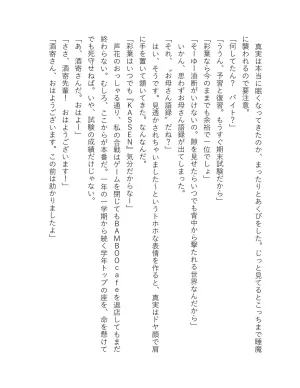 真実は本当に眠くなってきたのか、まったりとあくびをした。じっと見てるとこっちまで睡魔
に襲われるので要注意。
「何してたん？　バイト？」
「ううん、予習と復習。もうすぐ期末試験だから」
「彩葉なら今のままでも余裕で一位でしょ」
「そーゆー油断がいけないの。隙を見せたらいつでも背中から撃たれる世界なんだから」
　いかん、思わずお母さん語録が出てしまった。
「それ、〝お母さん語録〟だね？」
「はい、そうです。見透かされちゃいました〜というトホホな表情を作ると、真実はドヤ顔で肩
に手を置いて頷いてきた。なんなんだ。
「彩葉はいつでも『ＫＡＳＳＥＮ』気分だからなー」
　芦花のおっしゃる通り、私の合戦はゲームを閉じてもＢＡＭＢＯＯｃａｆｅを退店してもまだ
終わらない。むしろ、ここからが本番だ。一年の一学期から続く学年トップの座を、命を懸けて
でも死守せねば。いや、試験の成績だけじゃない。
「あ、酒寄さんだ。おはよー」
「ささ、酒寄先輩！　おはようございます！」
「酒寄さん　おはようございます。この前は助かりましたよ」